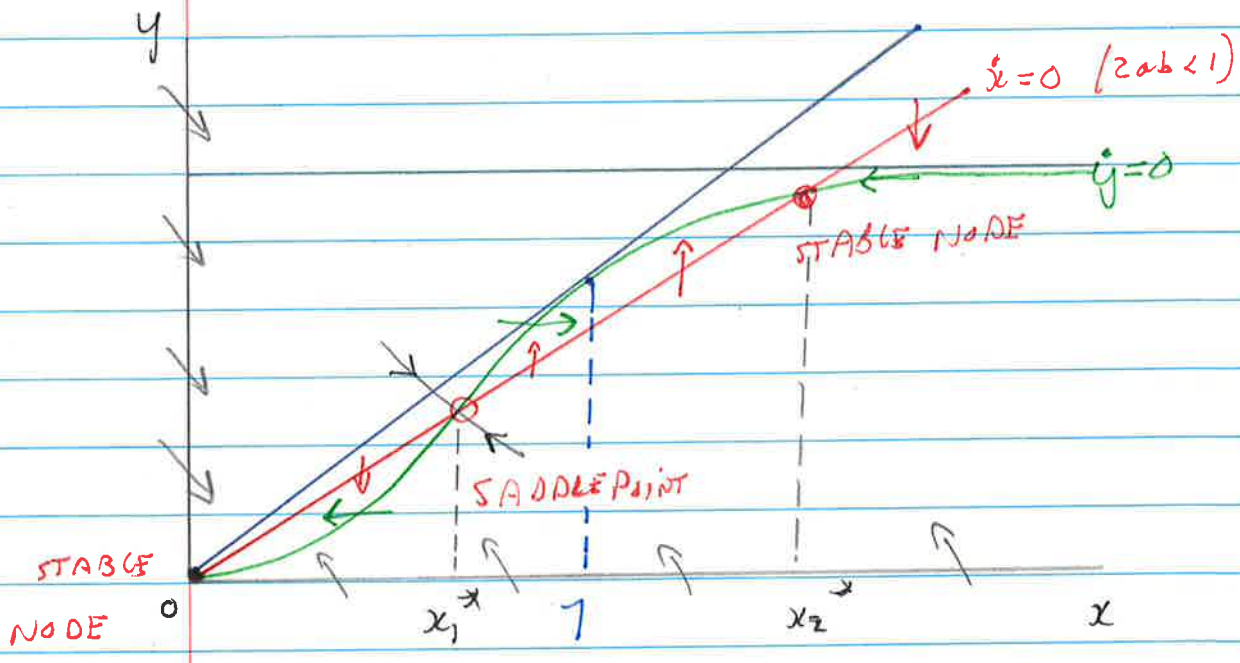 y
ẋ=0 (2ab<1)
ẏ=0
STABLE NODE
SADDLE POINT
STABLE
NODE
0
x₁*
1
x₂*
x